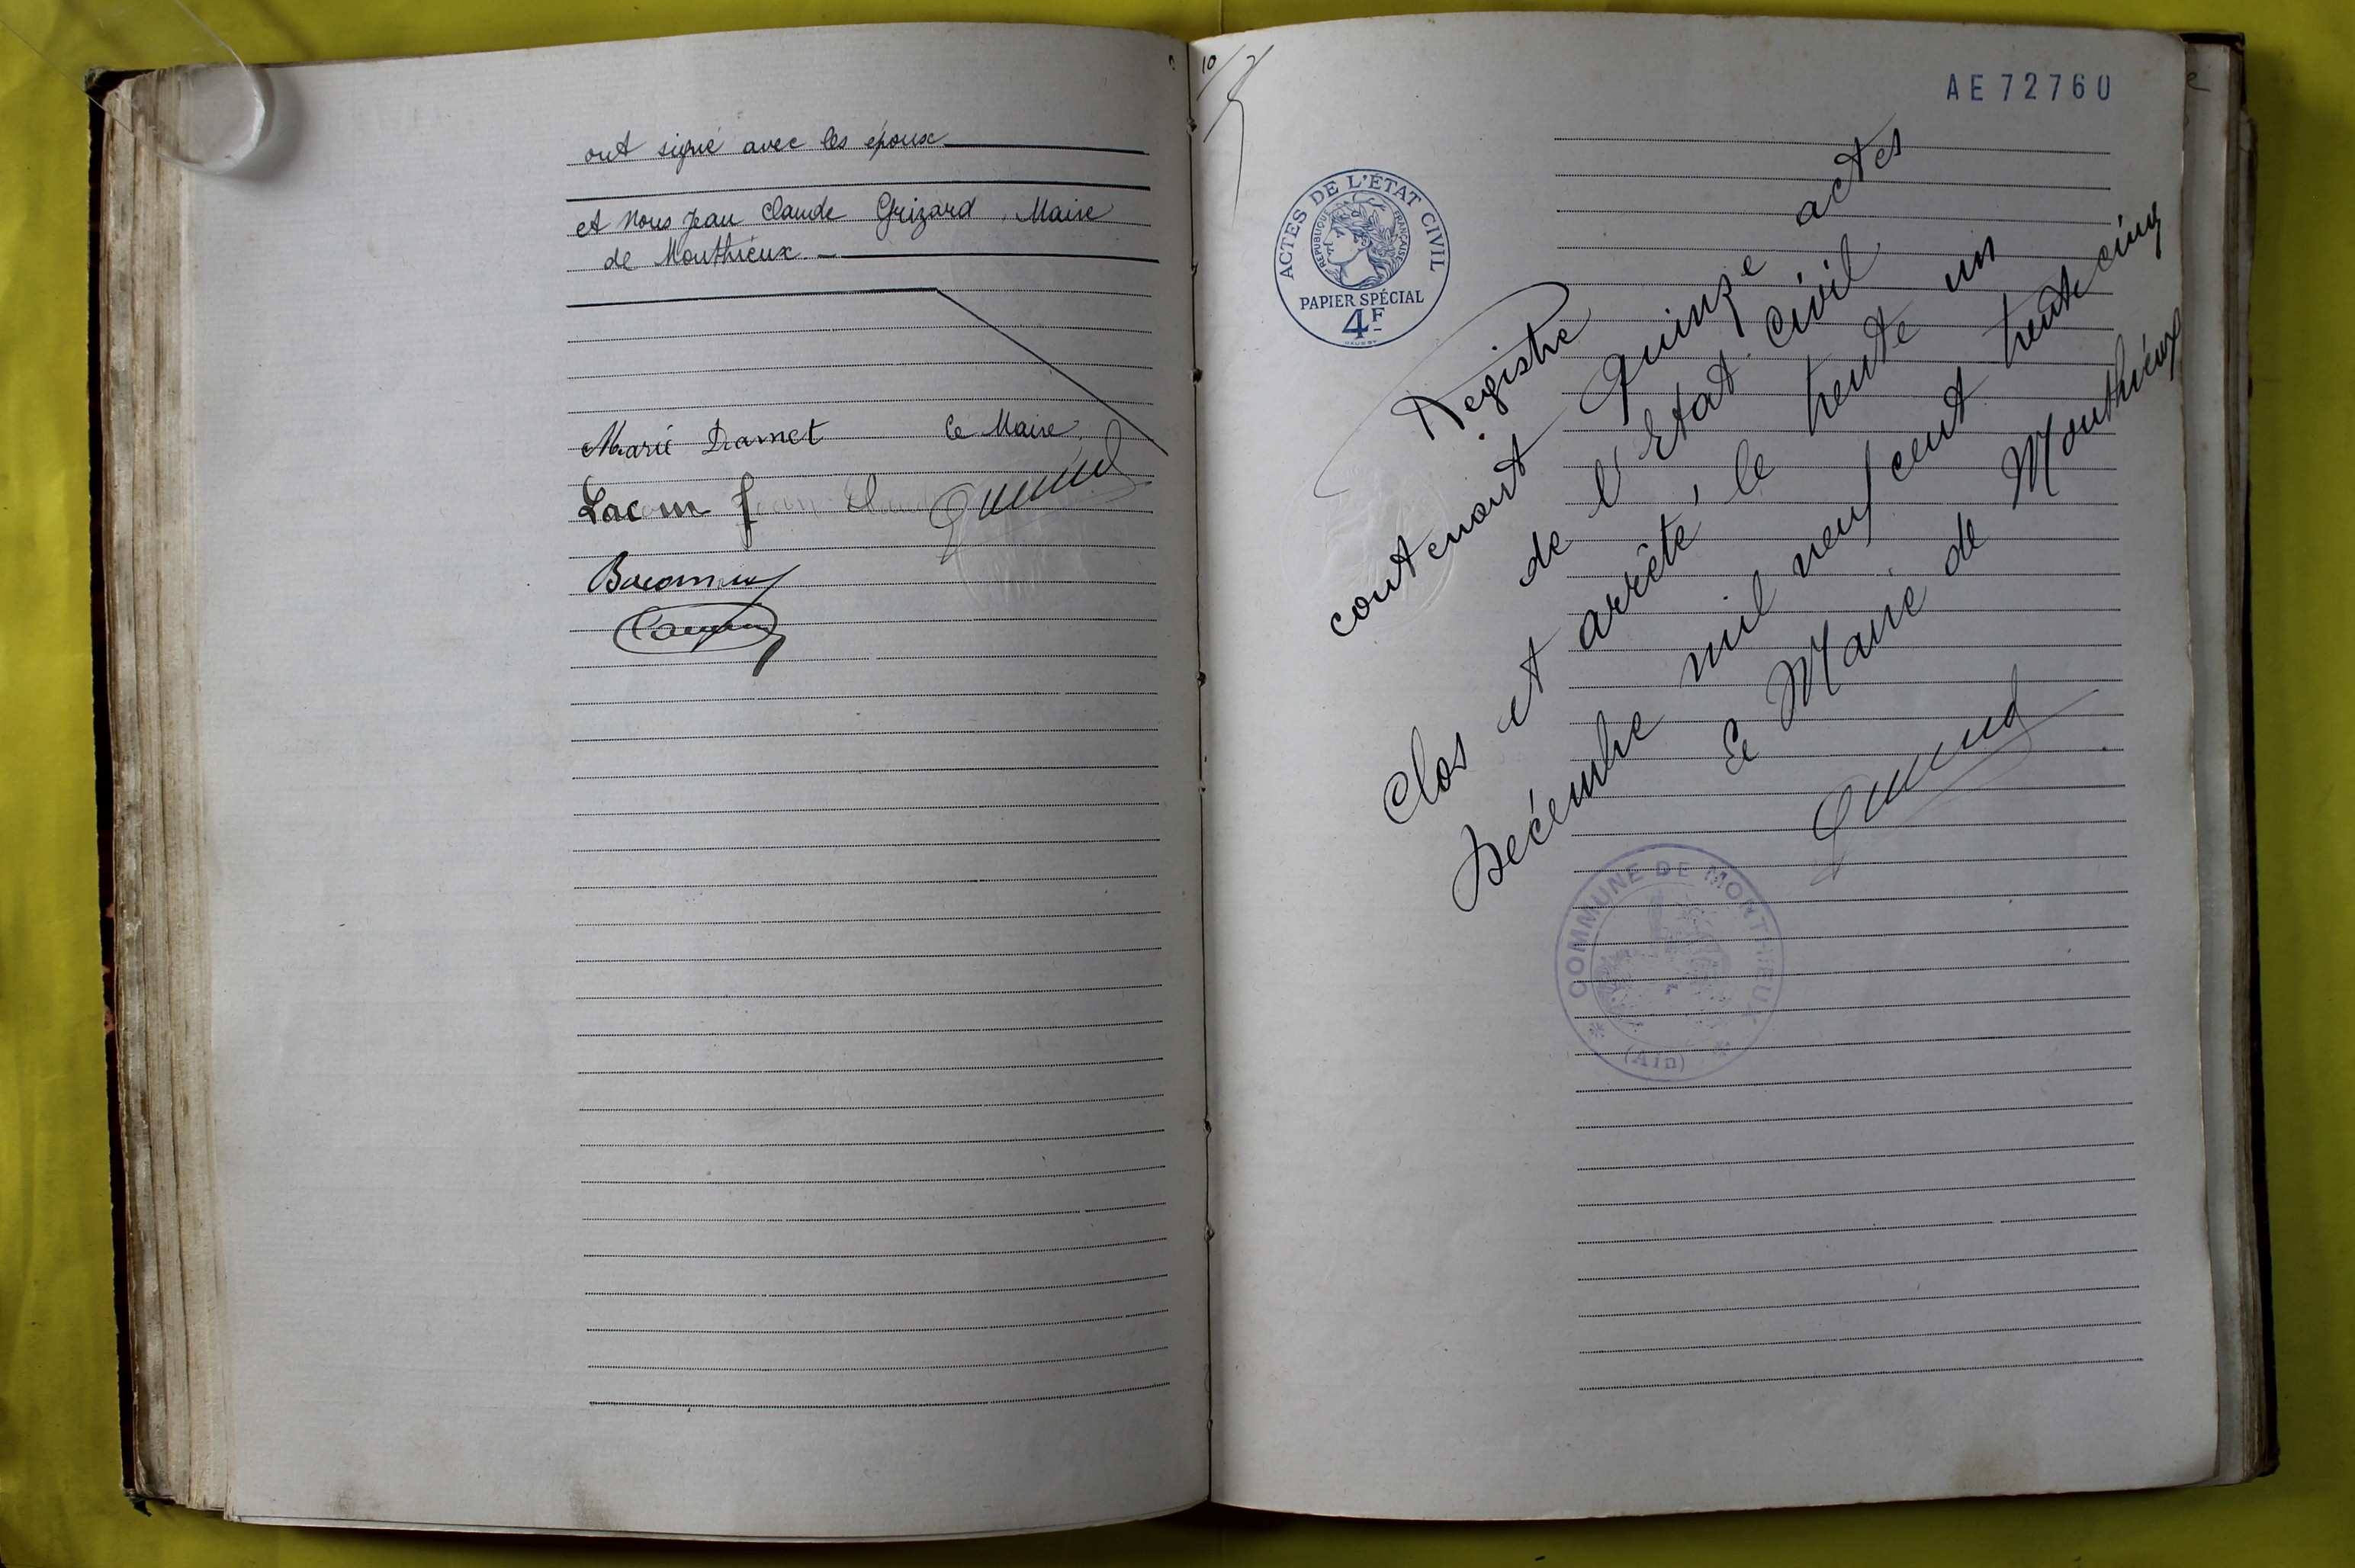 ont signé avec les époux
et Nous Jean Claude Grizard, Maire
de Monthieux
Marie Dramet le Maire,
Lacom Jean Claude
10
AE 72760
ACTES DE L'ÉTAT CIVIL
RÉPUBLIQUE FRANÇAISE
PAPIER SPÉCIAL
4F
Registre
contenant quinze actes
de l'Etat civil
clos et arrêté, le trente un
Décembre mil neuf cent trente cinq
Le Maire de Monthieux
COMMUNE DE MONTHIEUX
(Ain)